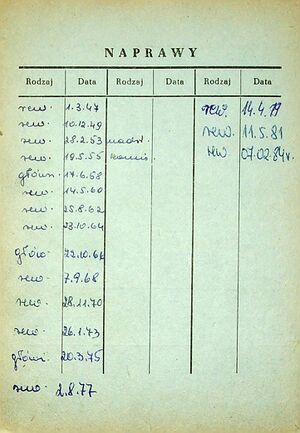 NAPRAWY
Rodzaj Data Rodzaj Data Rodzaj Data
rew. 1.3.47 rew. 14.4.79
rew. 10.12.49 rew. 11.5.81
rew. 28.2.53 rew 07.02.84r.
rew. 19.5.55
główn. 17.6.58
rew. 14.5.60
rew. 25.8.62
rew. 23.10.64
główn. 22.10.66
rew. 7.9.68
rew. 28.11.70
rew. 26.1.73
główn. 20.3.75
rew. 2.8.77